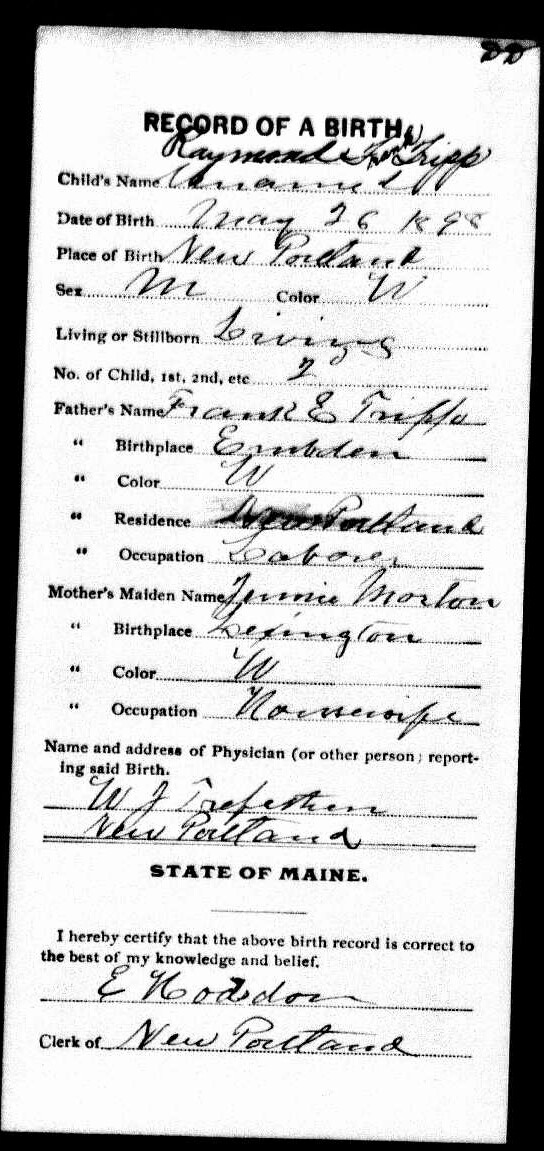 RECORD OF A BIRTH.
Raymond Tripp
Child's Name Unnamed
Date of Birth May 26 1898
Place of Birth New Portland
Sex M Color W
Living or Stillborn Living
No. of Child, 1st, 2nd, etc 2
Father's Name Frank E Tripp
" Birthplace Embden
" Color W
" Residence New Portland
" Occupation Laborer
Mother's Maiden Name Jennie Morton
" Birthplace Lexington
" Color W
" Occupation Housewife
Name and address of Physician (or other person; report-
ing said Birth.
W J Trefethen
New Portland
STATE OF MAINE.
I hereby certify that the above birth record is correct to
the best of my knowledge and belief.
E Hodsdon
Clerk of New Portland